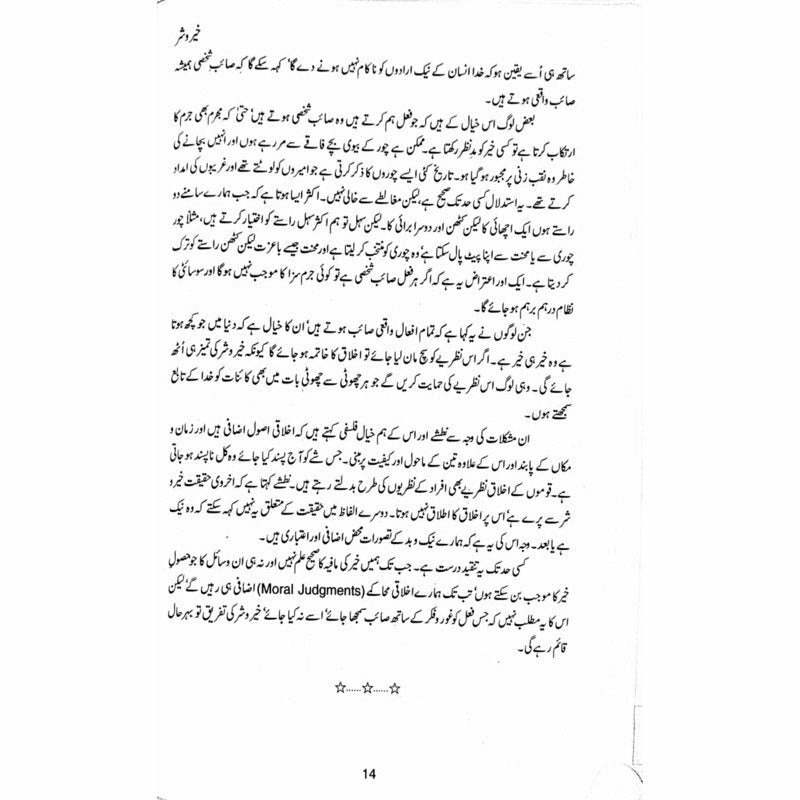 خیر و شر
ساتھ ہی اُسے یقین ہو کہ خدا انسان کے نیک ارادوں کو ناکام نہیں ہونے دے گا‘ کہہ سکے گا کہ صائب شخصی ہمیشہ
صائب واقعی ہوتے ہیں۔
بعض لوگ اس خیال کے ہیں کہ جو فعل ہم کرتے ہیں وہ صائب شخصی ہوتے ہیں‘ حتیٰ کہ مجرم بھی جرم کا
ارتکاب کرتا ہے تو کسی خیر کو مدِنظر رکھتا ہے۔ ممکن ہے چور کے بیوی بچے فاقے سے مر رہے ہوں اور انہیں بچانے کی
خاطر وہ نقب زنی پر مجبور ہو گیا ہو۔ تاریخ کئی ایسے چوروں کا ذکر کرتی ہے جو امیروں کو لوٹتے تھے اور غریبوں کی امداد
کرتے تھے۔ یہ استدلال کسی حد تک صحیح ہے، لیکن مغالطے سے خالی نہیں۔ اکثر ایسا ہوتا ہے کہ جب ہمارے سامنے دو
راستے ہوں ایک اچھائی کا لیکن کٹھن اور دوسرا برائی کا۔ لیکن سہل تو ہم اکثر سہل راستے کو اختیار کرتے ہیں، مثلاً چور
چوری سے یا محنت سے اپنا پیٹ پال سکتا ہے‘ وہ چوری کو منتخب کر لیتا ہے اور محنت جیسے باعزت لیکن کٹھن راستے کو ترک
کر دیتا ہے۔ ایک اور اعتراض یہ ہے کہ اگر ہر فعل صائب شخصی ہے تو کوئی جرم سزا کا موجب نہیں ہوگا اور سوسائٹی کا
نظام درہم برہم ہو جائے گا۔
جن لوگوں نے یہ کہا ہے کہ تمام افعال واقعی صائب ہوتے ہیں‘ ان کا خیال ہے کہ دنیا میں جو کچھ ہوتا
ہے وہ خیر ہی خیر ہے۔ اگر اس نظریے کو سچ مان لیا جائے تو اخلاق کا خاتمہ ہو جائے گا کیونکہ خیر و شر کی تمیز ہی اُٹھ
جائے گی۔ وہی لوگ اس نظریے کی حمایت کریں گے جو ہر چھوٹی سے چھوٹی بات میں بھی کائنات کو خدا کے تابع
سمجھتے ہوں۔
ان مشکلات کی وجہ سے نطشے اور اس کے ہم خیال فلسفی کہتے ہیں کہ اخلاقی اصول اضافی ہیں اور زمان و
مکاں کے پابند اور اس کے علاوہ تین کے ماحول اور کیفیت پر مبنی۔ جس شے کو آج پسند کیا جائے وہ کل ناپسند ہو جاتی
ہے۔ قوموں کے اخلاق نظریے بھی افراد کے نظریوں کی طرح بدلتے رہتے ہیں۔ نطشے کہتا ہے کہ اخروی حقیقت خیر و
شر سے پرے ہے‘ اس پر اخلاق کا اطلاق نہیں ہوتا۔ دوسرے الفاظ میں حقیقت کے متعلق یہ نہیں کہہ سکتے کہ وہ نیک
ہے یا بعد۔ وجہ اس کی یہ ہے کہ ہمارے نیک و بد کے تصورات محض اضافی اور اعتباری ہیں۔
کسی حد تک یہ تنقید درست ہے۔ جب تک ہمیں خیر کی مافیہ کا صحیح علم نہیں اور نہ ہی ان وسائل کا جو حصولِ
خیر کا موجب بن سکتے ہوں‘ تب تک ہمارے اخلاقی محاکے (Moral Judgments) اضافی ہی رہیں گے‘ لیکن
اس کا یہ مطلب نہیں کہ جس فعل کو غور و فکر کے ساتھ صائب سمجھا جائے‘ اسے نہ کیا جائے‘ خیر و شر کی تفریق تو بہرحال
قائم رہے گی۔
☆......☆......☆
14